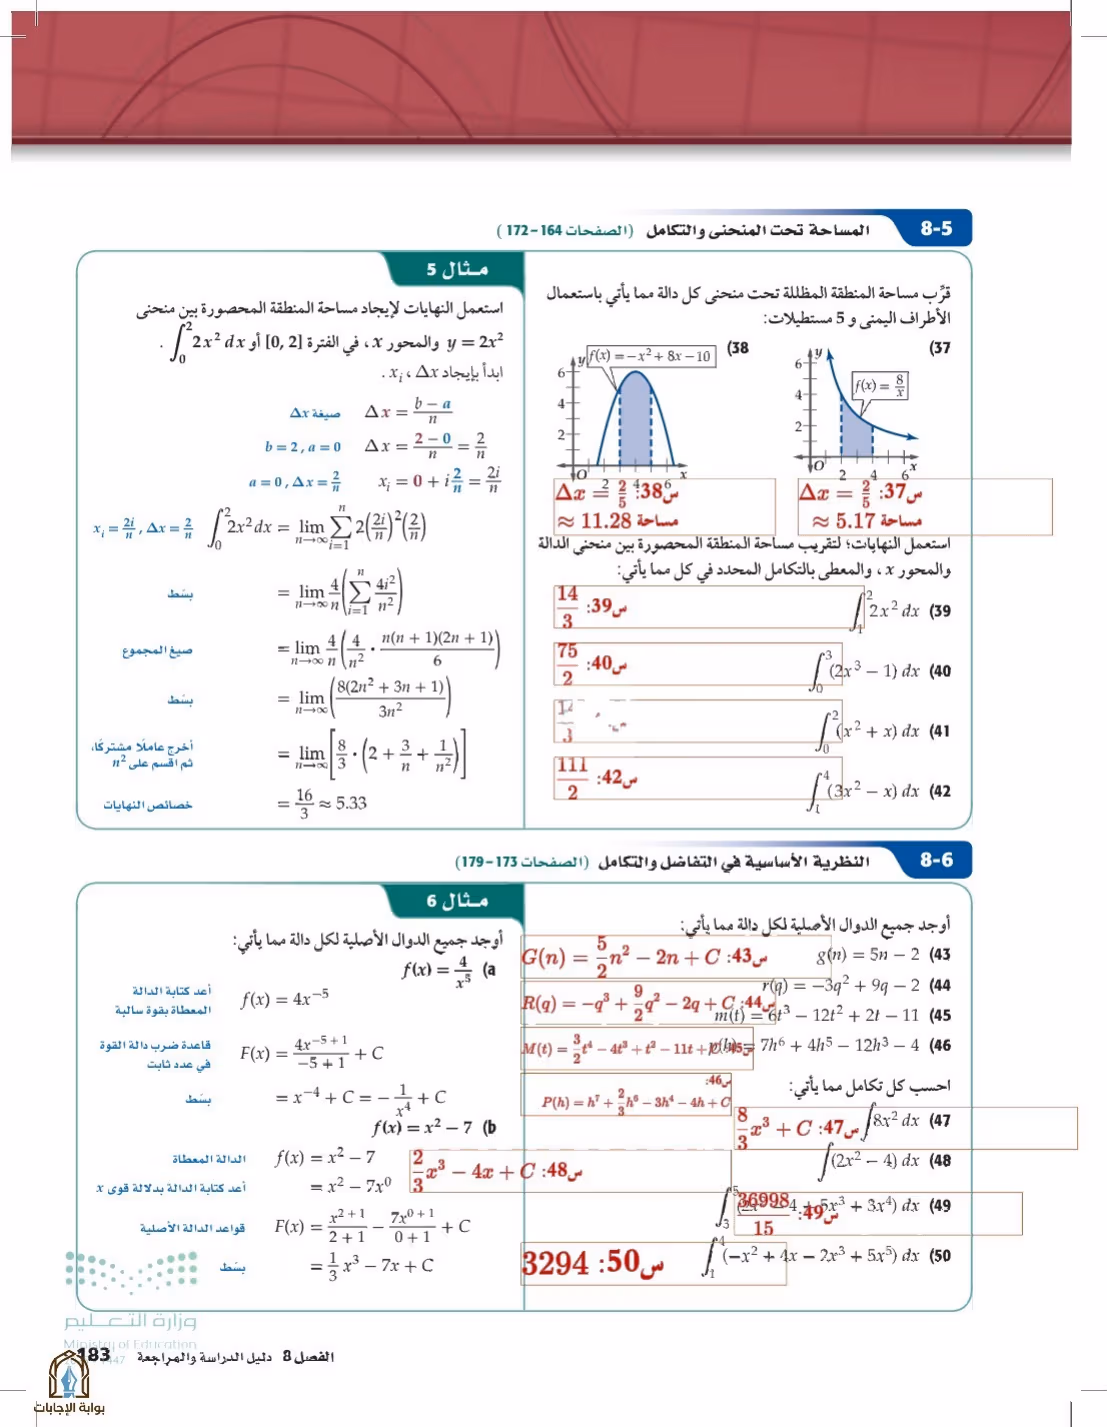 8-5 المساحة تحت المنحنى والتكامل (الصفحات 164 - 172)
قرِّب مساحة المنطقة المظللة تحت منحنى كل دالة مما يأتي باستعمال
الأطراف اليمنى و 5 مستطيلات:
(37
y
6
4
2
O
2 4 6 x
f(x) = 8/x
(38
y
6
4
2
O
2 4 6 x
f(x) = −x² + 8x − 10
س37: Δx = 2/5
مساحة ≈ 5.17
س38: Δx = 2/5
مساحة ≈ 11.28
استعمل النهايات؛ لتقريب مساحة المنطقة المحصورة بين منحنى الدالة
والمحور x ، والمعطى بالتكامل المحدد في كل مما يأتي:
(39 ∫₁² 2x² dx
س39: 14/3
(40 ∫₀³ (2x³ − 1) dx
س40: 75/2
(41 ∫₀² (x² + x) dx
14/3
(42 ∫₁⁴ (3x² − x) dx
س42: 111/2
مثال 5
استعمل النهايات لإيجاد مساحة المنطقة المحصورة بين منحنى
y = 2x² والمحور x ، في الفترة [0, 2] أو ∫₀² 2x² dx .
ابدأ بإيجاد xᵢ ، Δx .
صيغة Δx Δx = (b − a)/n
b = 2 , a = 0 Δx = (2 − 0)/n = 2/n
a = 0 , Δx = 2/n xᵢ = 0 + i 2/n = 2i/n
xᵢ = 2i/n , Δx = 2/n ∫₀² 2x² dx = lim n→∞ Σ i=1 n 2(2i/n)²(2/n)
بسّط = lim n→∞ 4/n (Σ i=1 n 4i²/n²)
صيغ المجموع = lim n→∞ 4/n (4/n² · n(n + 1)(2n + 1)/6)
بسّط = lim n→∞ (8(2n² + 3n + 1)/3n²)
أخرج عاملًا مشتركًا،
ثم اقسم على n²
= lim n→∞ [8/3 · (2 + 3/n + 1/n²)]
خصائص النهايات = 16/3 ≈ 5.33
8-6 النظرية الأساسية في التفاضل والتكامل (الصفحات 173 - 179)
أوجد جميع الدوال الأصلية لكل دالة مما يأتي:
(43 g(n) = 5n − 2
س43: G(n) = 5/2 n² − 2n + C
(44 r(q) = −3q² + 9q − 2
س44: R(q) = −q³ + 9/2 q² − 2q + C
(45 m(t) = 6t³ − 12t² + 2t − 11
س45: M(t) = 3/2 t⁴ − 4t³ + t² − 11t + C
(46 p(h) = 7h⁶ + 4h⁵ − 12h³ − 4
س46:
P(h) = h⁷ + 2/3 h⁶ − 3h⁴ − 4h + C
احسب كل تكامل مما يأتي:
(47 ∫ 8x² dx
س47: 8/3 x³ + C
(48 ∫ (2x² − 4) dx
س48: 2/3 x³ − 4x + C
(49 ∫₃⁵ (2x² − 4 + 5x³ + 3x⁴) dx
س49: 36998/15
(50 ∫₁⁴ (−x² + 4x − 2x³ + 5x⁵) dx
س50: 3294
مثال 6
أوجد جميع الدوال الأصلية لكل دالة مما يأتي:
(a f(x) = 4/x⁵
أعد كتابة الدالة
المعطاة بقوة سالبة
f(x) = 4x⁻⁵
قاعدة ضرب دالة القوة
في عدد ثابت
F(x) = 4x⁻⁵⁺¹/(−5 + 1) + C
بسّط = x⁻⁴ + C = − 1/x⁴ + C
(b f(x) = x² − 7
الدالة المعطاة f(x) = x² − 7
أعد كتابة الدالة بدلالة قوى x = x² − 7x⁰
قواعد الدالة الأصلية F(x) = x²⁺¹/(2 + 1) − 7x⁰⁺¹/(0 + 1) + C
بسّط = 1/3 x³ − 7x + C
وزارة التعليم
Ministry of Education
1447
الفصل 8 دليل الدراسة والمراجعة 183
بوابة الإجابات